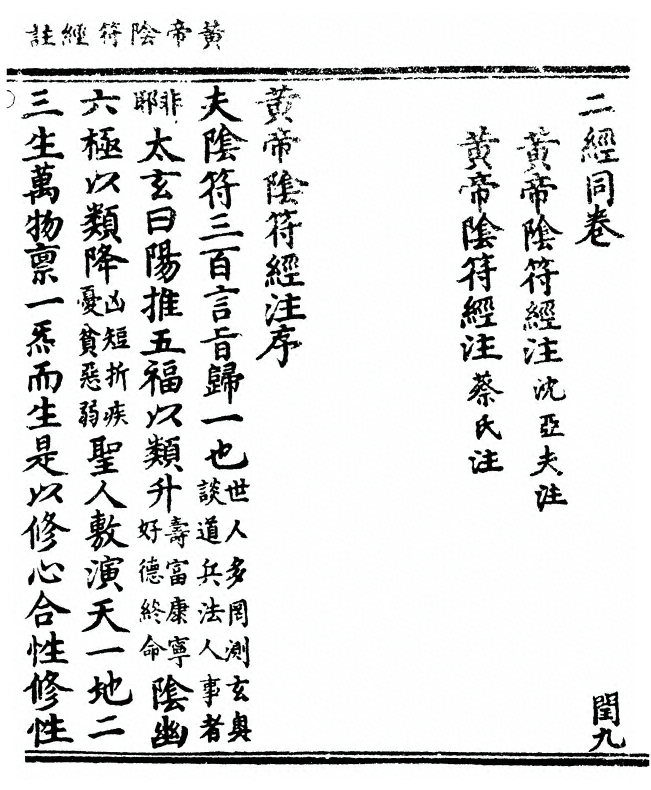 黃帝陰符經註
二經同卷　閏九
黃帝陰符經注　沈亞夫注
黃帝陰符經注　蔡氏注
黃帝陰符經注序
夫陰符三百言旨歸一也世人多罔測玄奥談道兵法人事者
非耶太玄曰陽推五福以類升壽富康寧好德終命陰幽
六極以類降凶短折疾憂貧惡弱聖人敷演天一地二
三生萬物禀一炁而生是以修心合性修性